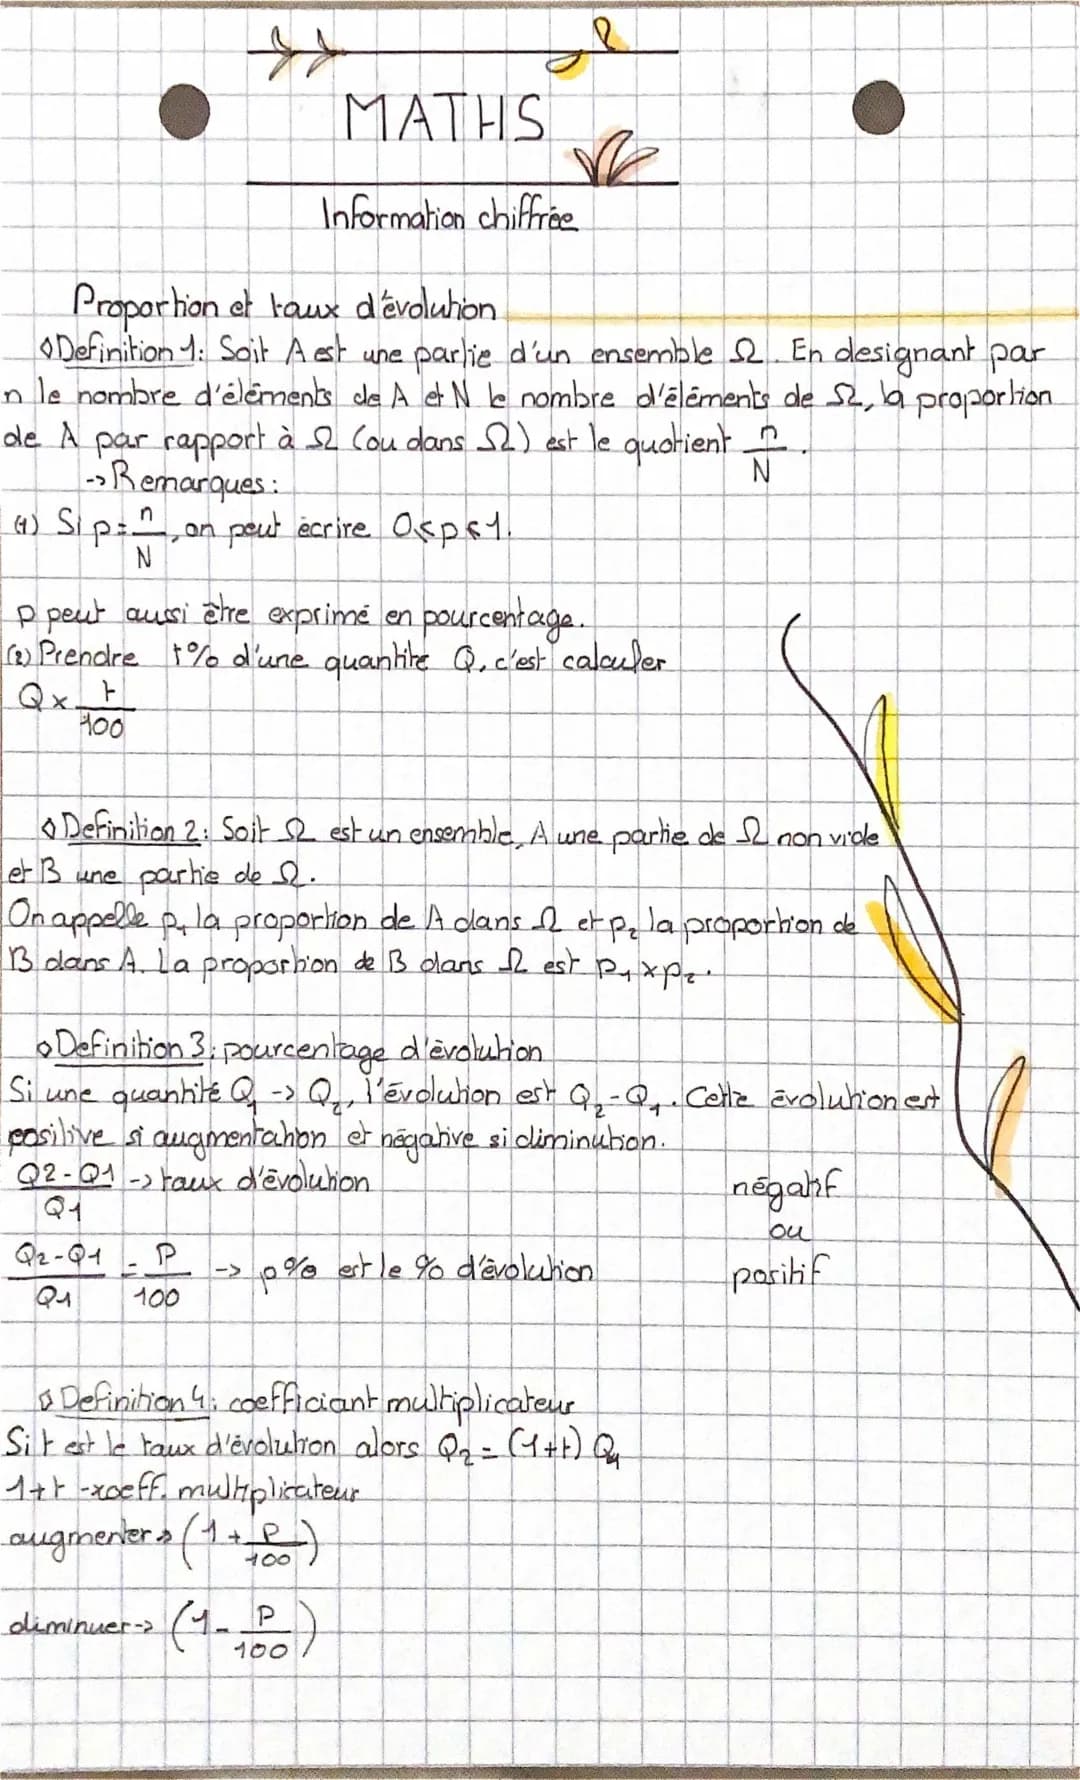 MATHS
Information chiffrée
Proportion et taux d'évolution
◊ Definition 1: Soit A est une partie d'un ensemble Ω. En designant par
n le nombre d'éléments de A et N le nombre d'éléments de Ω, la proportion
de A par rapport à Ω (ou dans Ω) est le quotient n/N.
-> Remarques:
(1) Si p = n/N, on peut écrire 0≤p≤1.
p peut aussi être exprimé en pourcentage.
(2) Prendre t% d'une quantité Q, c'est calculer
Q × t/100
◊ Definition 2: Soit Ω est un ensemble, A une partie de Ω non vide
et B une partie de Ω.
On appelle p₁ la proportion de A dans Ω et p₂ la proportion de
B dans A. La proportion de B dans Ω est p₁ × p₂.
◊ Definition 3: pourcentage d'évolution
Si une quantité Q₁ -> Q₂, l'évolution est Q₂-Q₁. Cette évolution est
positive si augmentation et négative si diminution.
Q2-Q1/Q1 -> taux d'évolution
négatif
ou
positif
Q2-Q1/Q1 = P/100 -> p% est le % d'évolution
◊ Definition 4: coefficiant multiplicateur
Si t est le taux d'évolution alors Q₂ = (1+t) Q₁
1+t -> coeff. multiplicateur
augmenter -> (1 + P/100)
diminuer -> (1 - P/100)